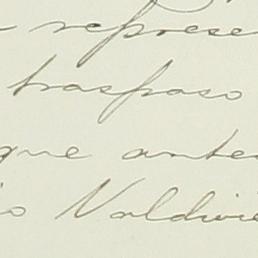 represe
traspaso
que ante
io Valdivie